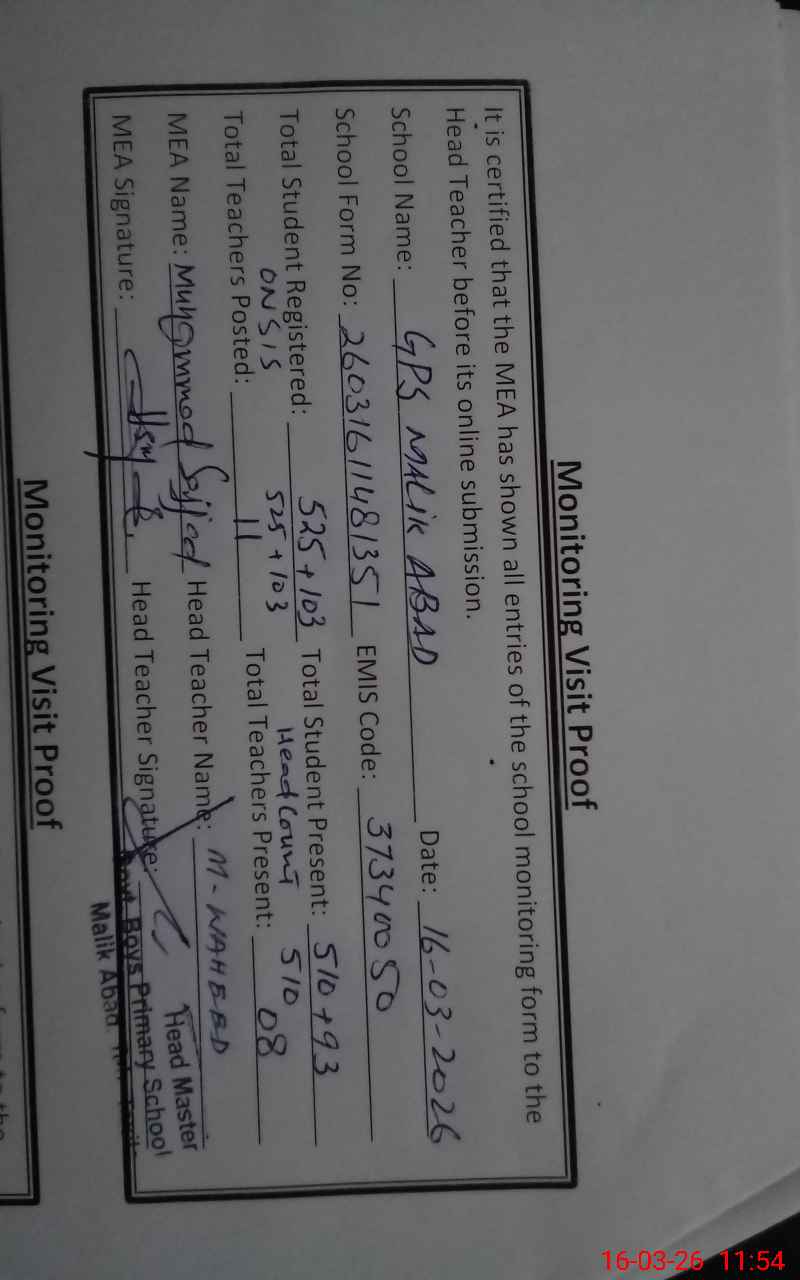 Monitoring Visit Proof
It is certified that the MEA has shown all entries of the school monitoring form to the
Head Teacher before its online submission.
School Name: GPS MALIK ABAD Date: 16-03-2026
School Form No: 26031611481351 EMIS Code: 37340050
Total Student Registered: 525+103 Total Student Present: 510+93
ON SIS 525+103 Head Count 510
Total Teachers Posted: 11 Total Teachers Present: 08
MEA Name: Muhammad Sajjad Head Teacher Name: M-WAHEED
MEA Signature: Head Teacher Signature:
Head Master
Govt. Boys Primary School
Malik Abad
Monitoring Visit Proof
16-03-26 11:54